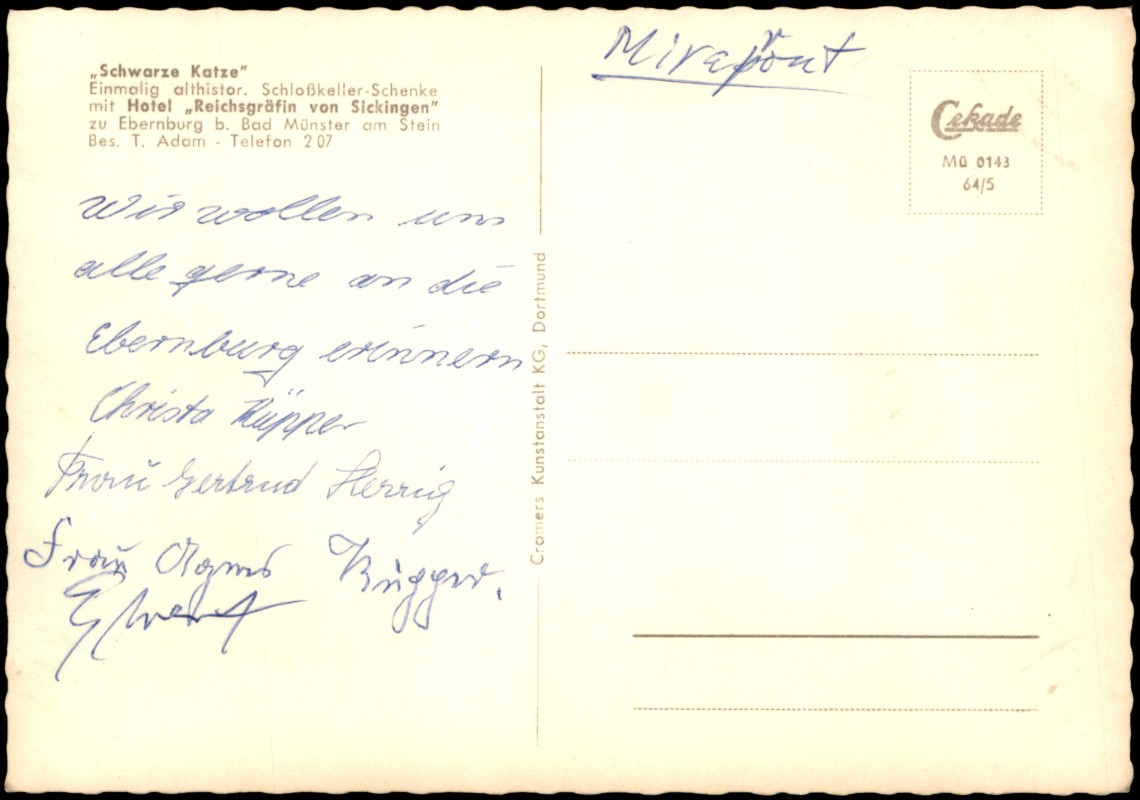 „Schwarze Katze"
Einmalig althistor. Schloßkeller-Schenke
mit Hotel „Reichsgräfin von Sickingen"
zu Ebernburg b. Bad Münster am Stein
Bes. T. Adam - Telefon 2 07
Wir wollen uns
alle gerne an die
Ebernburg erinnern
Christa Küpper
Frau Gertrud Herrig
Frau Agnes Küpper.
Cramers Kunstanstalt KG, Dortmund
Cekade
Mü 0143
64/5